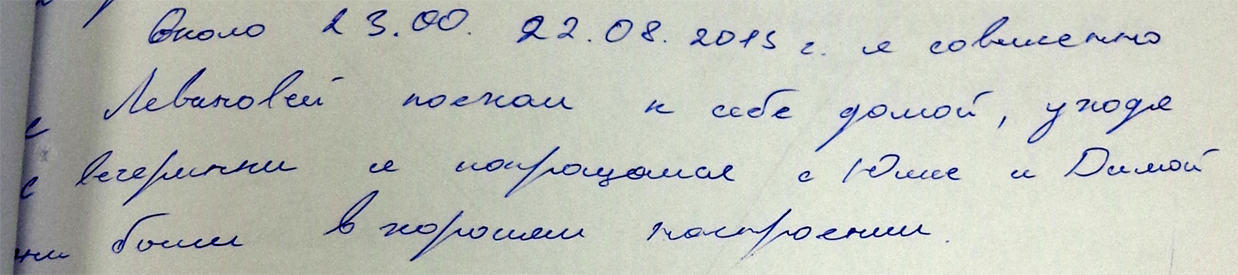 Около 23.00. 22.08.2015 г. я совместно
с Левановой поехал к себе домой, уходя
с вечеринки я попрощался с Юлие и Димой
они были в хорошем настроении.